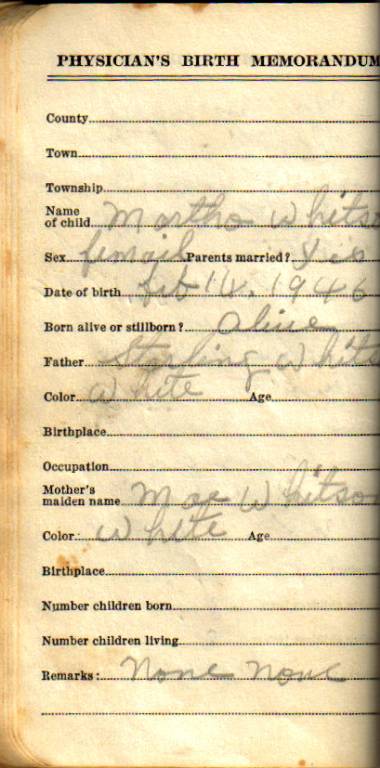 PHYSICIAN'S BIRTH MEMORANDUM
County
Town
Township
Name
of child Martha Whitso
Sex femail Parents married? Yes
Date of birth Feb 14, 1946
Born alive or stillborn? alive
Father Starling Whits
Color White Age
Birthplace
Occupation
Mother's
maiden name Mae Whitson
Color: White Age
Birthplace
Number children born
Number children living
Remarks: None None